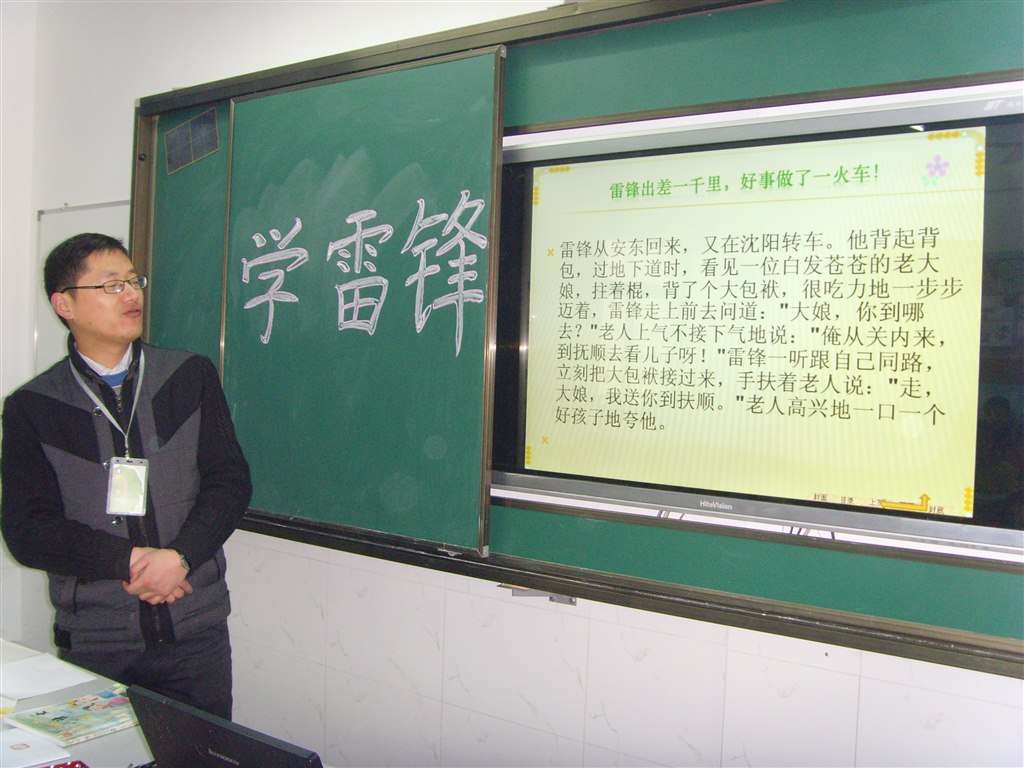 学雷锋
雷锋出差一千里，好事做了一火车！
雷锋从安东回来，又在沈阳转车。他背起背
包，过地下道时，看见一位白发苍苍的老大
娘，拄着棍，背了个大包袱，很吃力地一步步
迈着，雷锋走上前去问道："大娘，你到哪
去？"老人上气不接下气地说："俺从关内来，
到抚顺去看儿子呀！"雷锋一听跟自己同路，
立刻把大包袱接过来，手扶着老人说："走，
大娘，我送你到扶顺。"老人高兴地一口一个
好孩子地夸他。
封面 目录 上 封底
HiteVision
lenovo